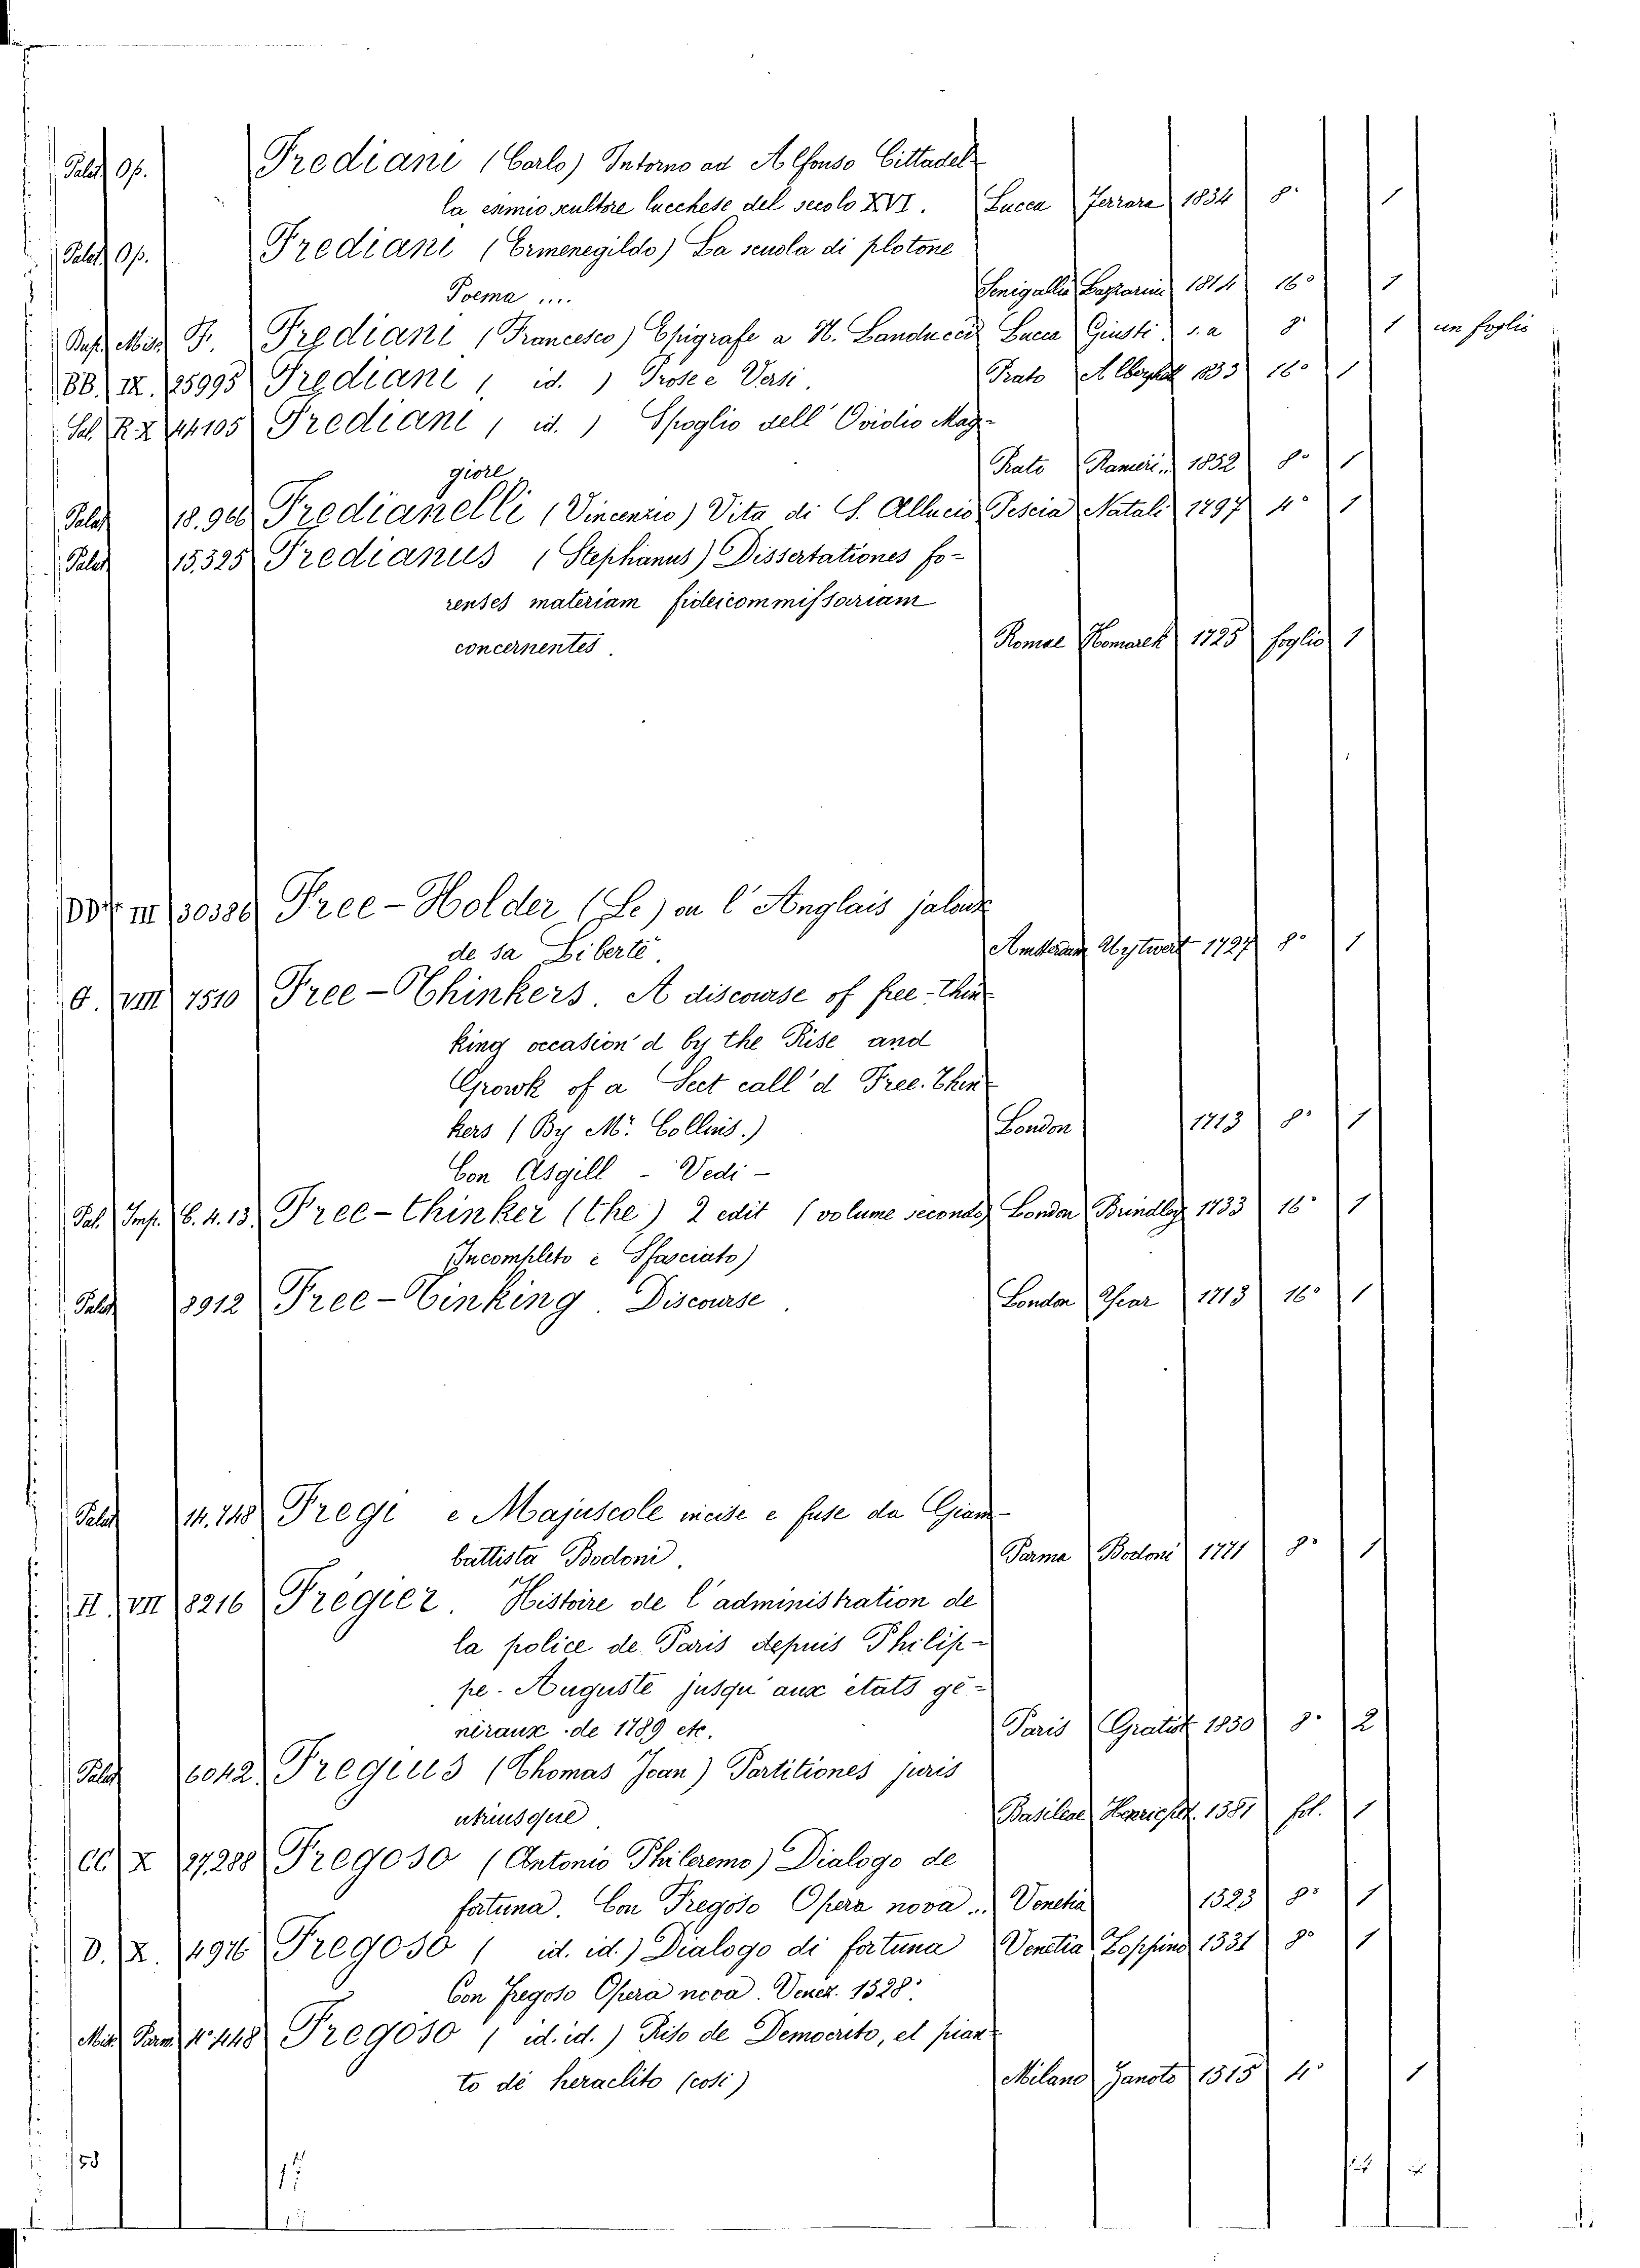 Palat. Op. Frediani (Carlo) Intorno ad Alfonso Cittadel-
la esimio scultore lucchese del secolo XVI. Lucca Ferrara 1834 8° 1
Palat. Op. Frediani (Ermenegildo) La scuola di plotone
Poema .... Senigallia 1814 16° 1
Misc. F. Frediani (Francesco) Epigrafe a N. Landucci Lucca Giusti s.a 8° 1 un foglio
BB. IX. 25995 Frediani ( id. ) Prose e Versi. Prato Alberghett. 1833 16° 1
Sal. R. X 44105 Frediani ( id. ) Spoglio dell' Ovidio Mag-
giore Prato Ranieri 1852 8° 1
Palat. 18.966 Fredianelli (Vincenzio) Vita di S. Allucio Pescia Natali 1797 4° 1
Palat. 15.325 Fredianus (Stephanus) Dissertationes fo-
renses materiam fideicommissariam
concernentes. Romae Komarek 1725 foglio 1
III 30386 Free-Holder (Le) ou l'Anglais jaloux
de sa Liberté. Amsterdam Uytwerf 1727 8° 1
O. VIII 7510 Free-Thinkers. A discourse of free-thin-
king occasion'd by the Rise and
Growk of a Sect call'd Free-Thin-
kers (By Mr. Collins.) London 1713 8° 1
Con Asgill - Vedi -
Pal. Imp. C.4.13. Free-thinker (the) 2 edit (volume secondo) London Brindley 1733 16° 1
(Incompleto e Sfasciato)
Palat. 8912 Free-Tinking. Discourse. London Year 1713 16° 1
Palat. 14.748 Fregi e Majuscole incise e fuse da Giam-
battista Bodoni. Parma Bodoni 1771 8° 1
II. VII 8216 Frégier. Histoire de l'administration de
la police de Paris depuis Philip-
pe-Auguste jusqu'aux états gé-
néraux de 1789 etc. Paris Gratiot 1850 8° 2
Palat. 6042. Fregius (Thomas Joan) Partitiones juris
utriusque Basileae Henricpet. 1581 fol. 1
CC X 27,288 Fregoso (Antonio Phileremo) Dialogo de
fortuna. Con Fregoso Opera nova... Venetia 1523 8° 1
D. X. 4976 Fregoso ( id. id.) Dialogo di fortuna Venetia Zoppino 1531 8° 1
Con Fregoso Opera nova. Venez. 1528.
Mis. Parm. 4° 448 Fregoso ( id. id.) Riso de Democrito, et pian-
to de heraclito (così) Milano Janoto 1515 4° 1